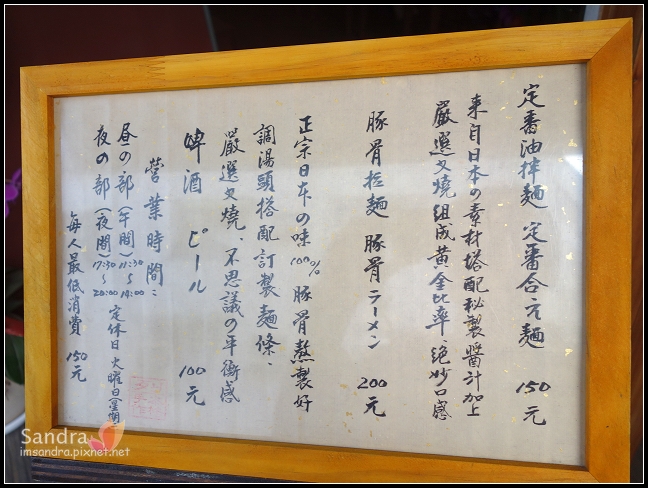 定番油拌麵 定番合え麵 150元
來自日本の素材搭配秘製醬汁加上
嚴選叉燒組成黃金比率、絕妙口感
豚骨拉麵 豚骨ラーメン 200元
正宗日本の味 100% 豚骨熬製好
調湯頭搭配訂製麵條、
嚴選叉燒、不思議の平衡感
啤酒 ビール 100元
營業時間：
昼の部（午間）11:30～14:00
夜の部（夜間）17:30～20:00
定休日 火曜日(星期二
每人最低消費 150元
Sandra
imsandra.pixnet.net